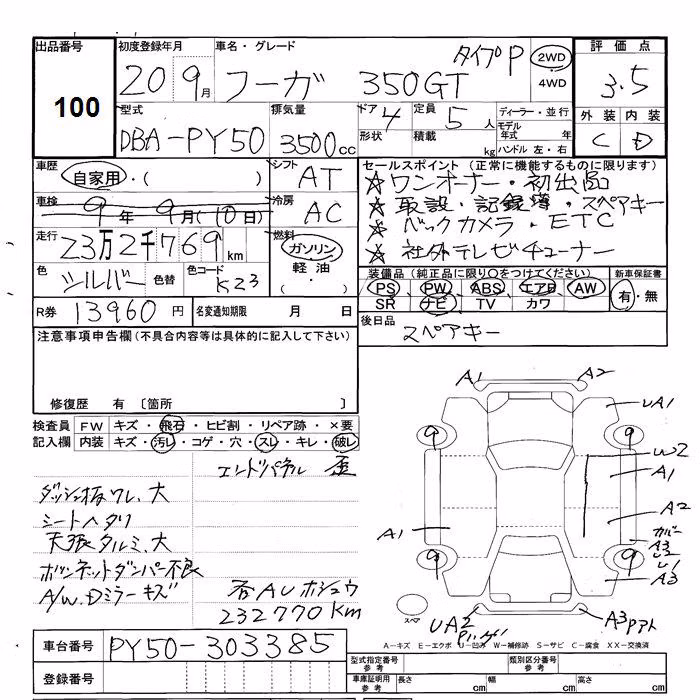 出品番号
100
初度登録年月
20 9月
車名・グレード
フーガ 350GT タイプP
2WD
4WD
評価点
3.5
外装 内装
C D
型式
DBA-PY50
排気量
3500cc
ドア 4
形状
定員 5人
積載 kg
ディーラー・並行
モデル年式 年
ハンドル 左・右
車歴
自家用・( )
シフト
AT
車検
9年 9月(10日)
冷房
AC
走行
23万2千769km
燃料
ガソリン
軽油
・( )
色
シルバー
色替
色コード
K23
R券 13960円
名変通知期限 月 日
セールスポイント (正常に機能するものに限ります)
☆ワンオーナー・初出品
☆取説・記録簿・スペアキー
☆バックカメラ・ETC
☆社外テレビチューナー
装備品 (純正品に限り○をつけてください)
PS PW ABS エアB AW
SR ナビ TV カワ
新車保証書
有・無
後日品
スペアキー
注意事項申告欄(不具合内容等は具体的に記入して下さい)
修復歴 有 〔箇所 〕
検査員記入欄
FW キズ・飛石・ヒビ割・リペア跡・×要
内装 キズ・汚レ・コゲ・穴・スレ・キレ・破レ
エンドパネル 歪
ダッシュ板ワレ、大
シートヘタリ
天張タルミ、大
ボンネットダンパー不良
A/W、Dミラーキズ
232770Km
A1 A2
UA1
9 9
W2
A1
A2
A1
カバー
A3
U1
9 9
A3
スペア
UA2
A3
A-キズ E-エクボ U-凹み W-補修跡 S-サビ C-腐食 XX-交換済
車台番号
PY50-303385
登録番号
型式指定番号 参考
類別区分番号 参考
車庫証明用 参考
長さ cm
幅 cm
高さ cm